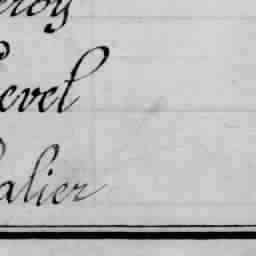 eroy
evel
alier